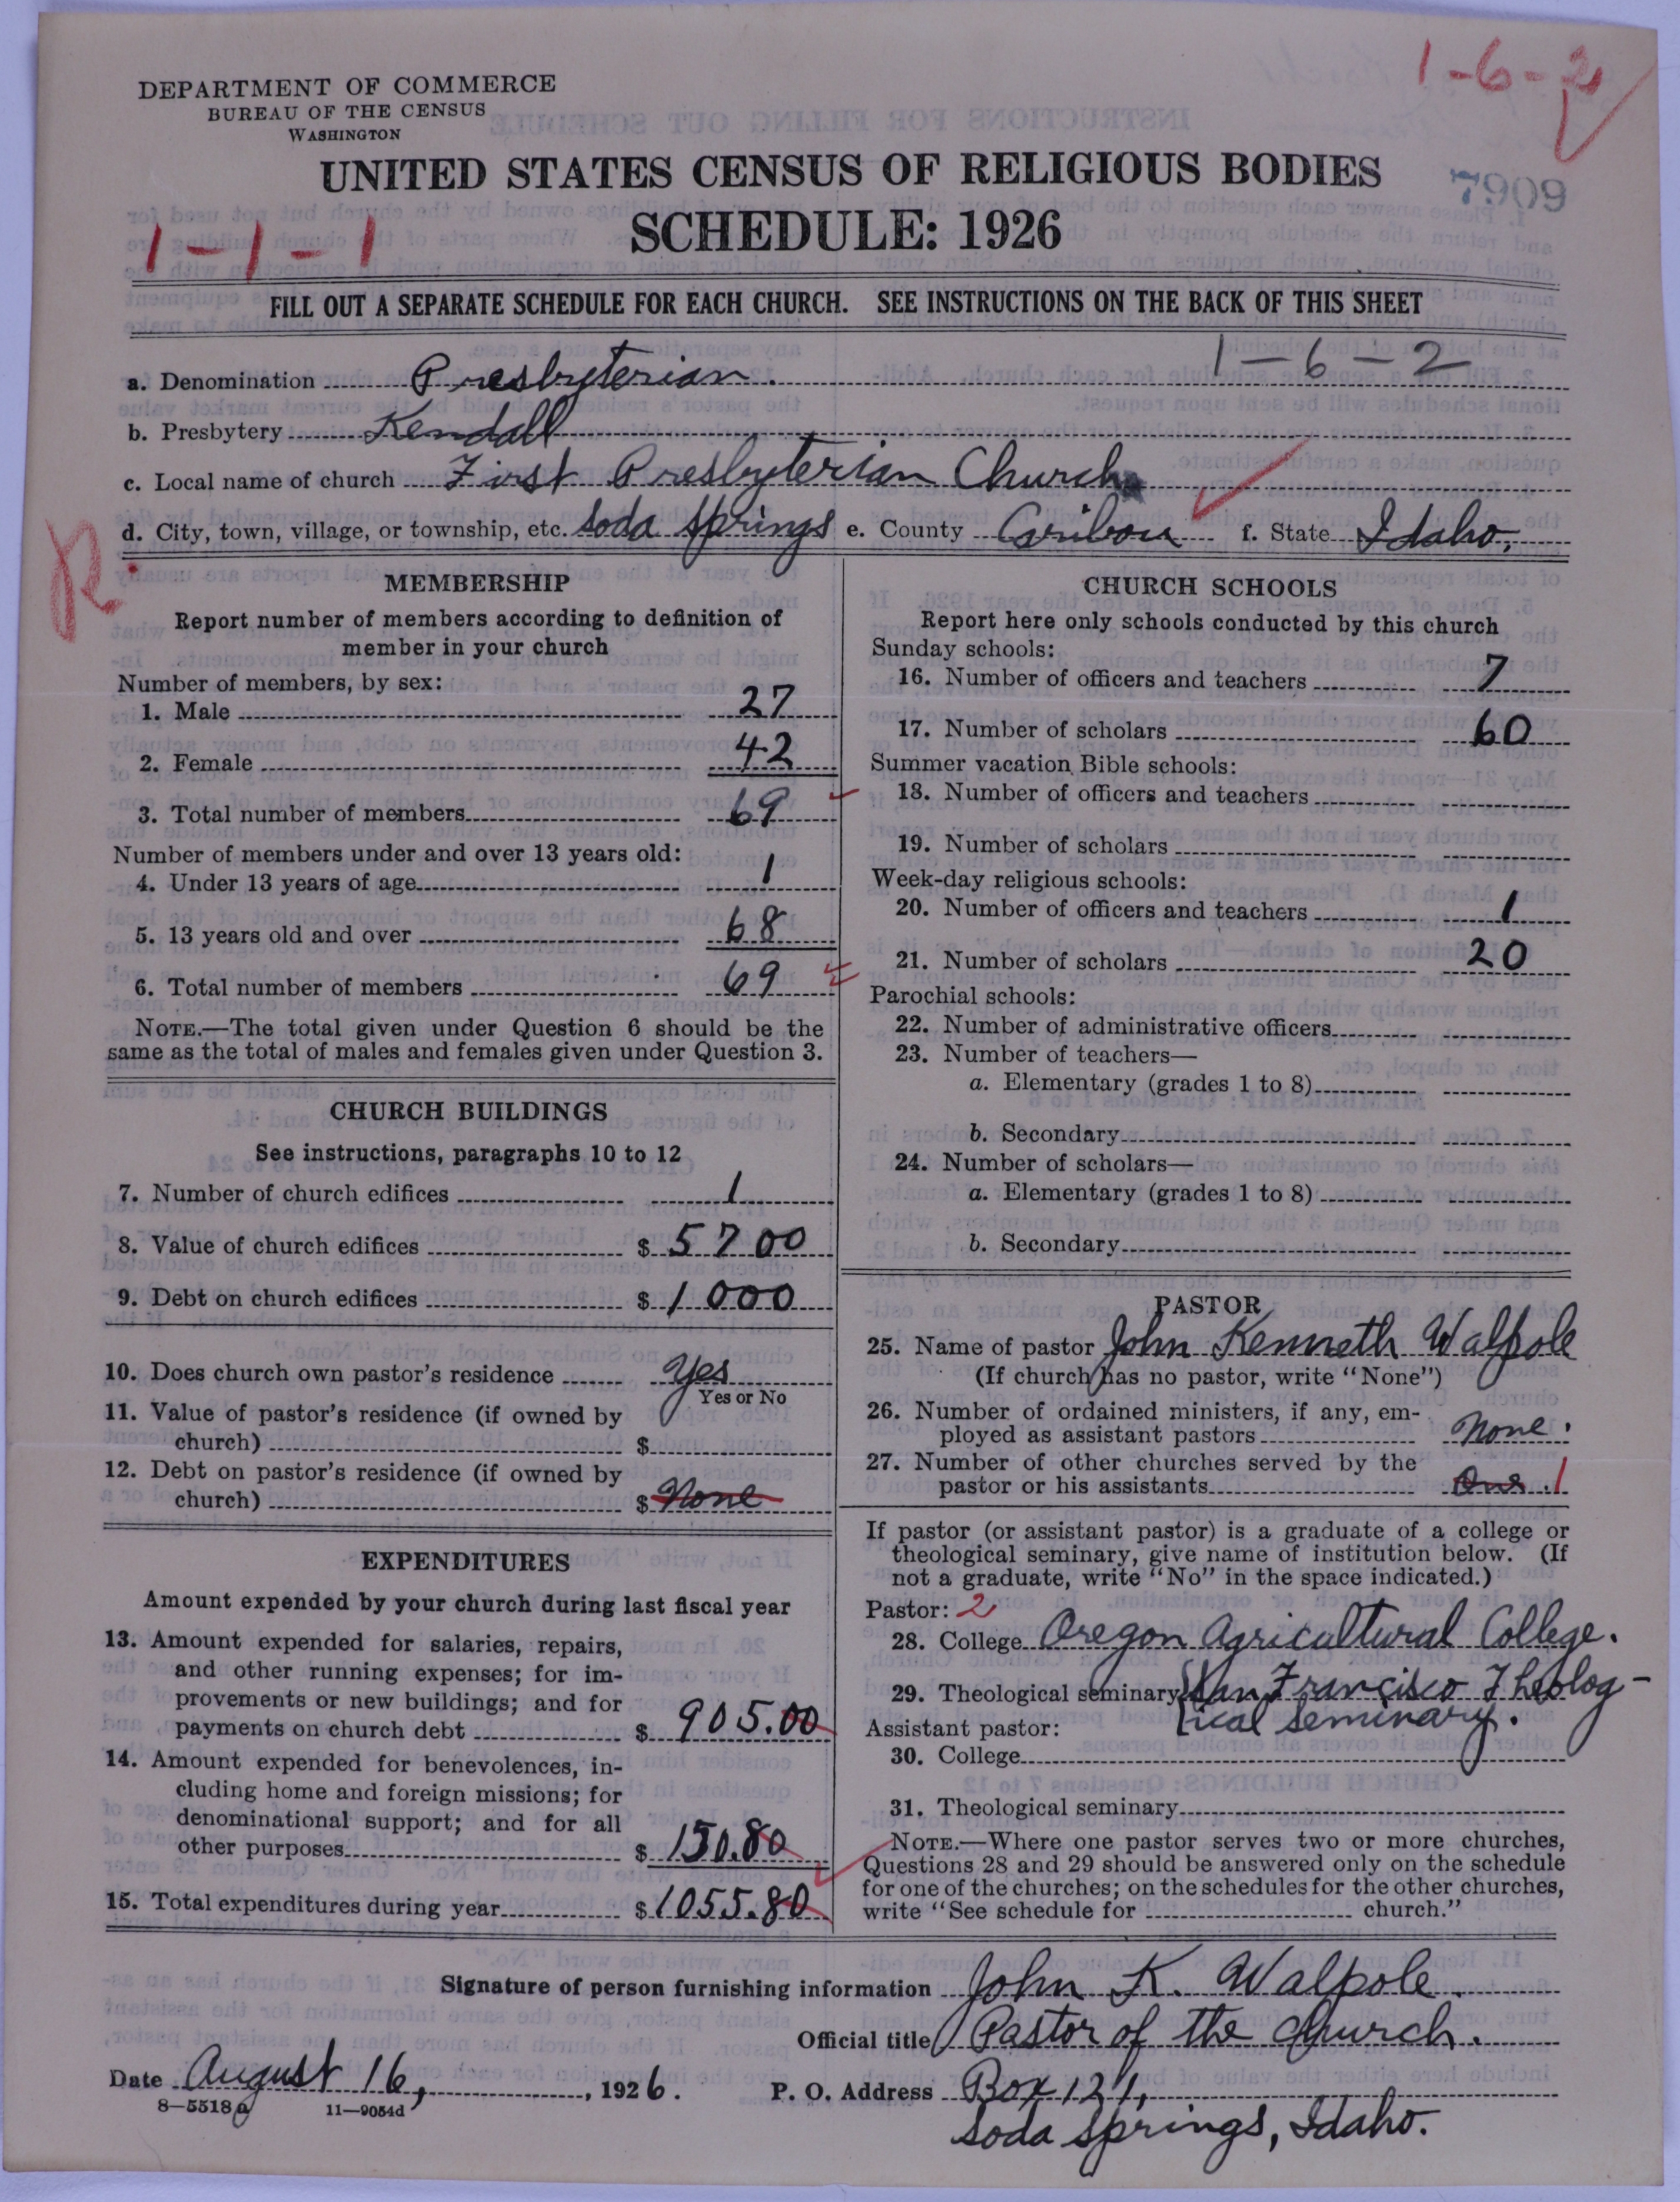 1-6-2
DEPARTMENT OF COMMERCE
BUREAU OF THE CENSUS
WASHINGTON
UNITED STATES CENSUS OF RELIGIOUS BODIES
7909
SCHEDULE: 1926
1-1-1
FILL OUT A SEPARATE SCHEDULE FOR EACH CHURCH. SEE INSTRUCTIONS ON THE BACK OF THIS SHEET
1-6-2
a. Denomination Presbyterian.
b. Presbytery Kendall
c. Local name of church First Presbyterian Church
d. City, town, village, or township, etc. Soda Springs e. County Caribou f. State Idaho.
R.
MEMBERSHIP
Report number of members according to definition of
member in your church
Number of members, by sex:
1. Male 27
2. Female 42
3. Total number of members 69
Number of members under and over 13 years old:
4. Under 13 years of age 1
5. 13 years old and over 68
6. Total number of members 69
NOTE.—The total given under Question 6 should be the
same as the total of males and females given under Question 3.
CHURCH BUILDINGS
See instructions, paragraphs 10 to 12
7. Number of church edifices 1
8. Value of church edifices $ 5700
9. Debt on church edifices $ 1000
10. Does church own pastor's residence Yes
Yes or No
11. Value of pastor's residence (if owned by
church) $
12. Debt on pastor's residence (if owned by
church) $ None
EXPENDITURES
Amount expended by your church during last fiscal year
13. Amount expended for salaries, repairs,
and other running expenses; for im-
provements or new buildings; and for
payments on church debt $ 905.00
14. Amount expended for benevolences, in-
cluding home and foreign missions; for
denominational support; and for all
other purposes $ 150.80
15. Total expenditures during year $ 1055.80
CHURCH SCHOOLS
Report here only schools conducted by this church
Sunday schools:
16. Number of officers and teachers 7
17. Number of scholars 60
Summer vacation Bible schools:
18. Number of officers and teachers
19. Number of scholars
Week-day religious schools:
20. Number of officers and teachers 1
21. Number of scholars 20
Parochial schools:
22. Number of administrative officers
23. Number of teachers—
a. Elementary (grades 1 to 8)
b. Secondary
24. Number of scholars—
a. Elementary (grades 1 to 8)
b. Secondary
PASTOR
25. Name of pastor John Kenneth Walpole
(If church has no pastor, write "None")
26. Number of ordained ministers, if any, em-
ployed as assistant pastors None.
27. Number of other churches served by the
pastor or his assistants One. 1
If pastor (or assistant pastor) is a graduate of a college or
theological seminary, give name of institution below. (If
not a graduate, write "No" in the space indicated.)
Pastor: 2
28. College Oregon Agricultural College.
29. Theological seminary San Francisco Theolog-
ical Seminary.
Assistant pastor:
30. College
31. Theological seminary
NOTE.—Where one pastor serves two or more churches,
Questions 28 and 29 should be answered only on the schedule
for one of the churches; on the schedules for the other churches,
write "See schedule for church."
Signature of person furnishing information John K. Walpole.
Official title Pastor of the church.
Date August 16, 1926.
P. O. Address Box 121,
Soda Springs, Idaho.
8—5518a 11—9054d